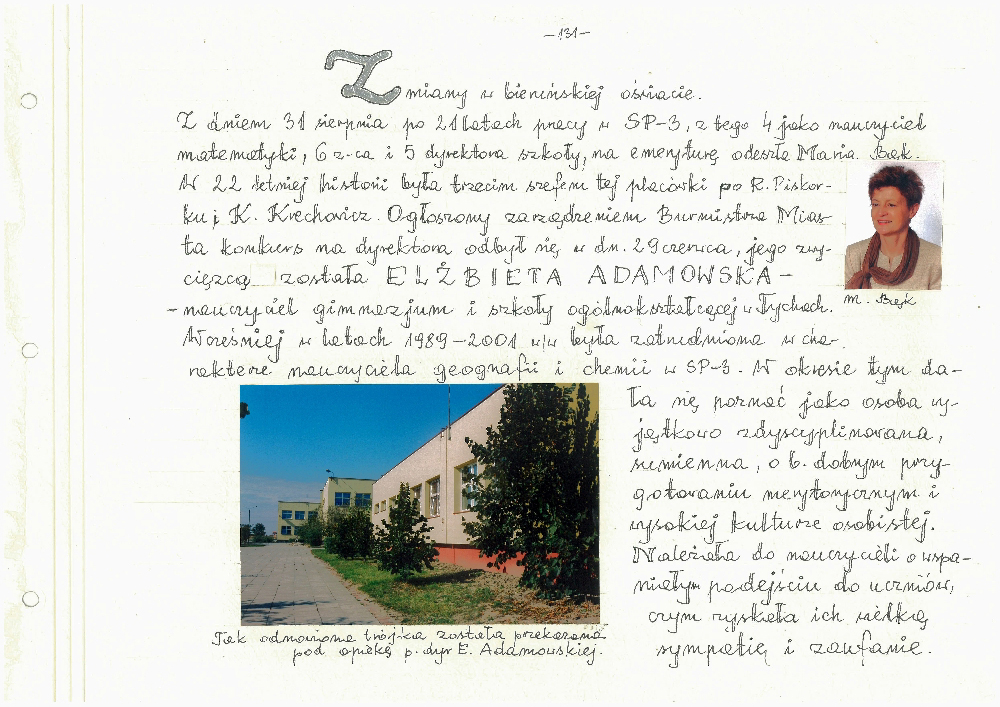 -131-
Zmiany w bieruńskiej oświacie.
Z dniem 31 sierpnia po 21 latach pracy w SP-3, z tego 4 jako nauczyciel
matematyki, 6 z-ca i 5 dyrektora szkoły, na emeryturę odeszła Maria Bąk.
W 22 letniej historii była trzecim szefem tej placówki po R. Piskor-
ku i K. Krechowicz. Ogłoszony zarządzeniem Burmistrza Mias-
ta konkurs na dyrektora odbył się w dn. 29 czerwca, jego zwy-
cięzcą została ELŻBIETA ADAMOWSKA -
- nauczyciel gimnazjum i szkoły ogólnokształcącej w Tychach.
M. Bąk
Wcześniej w latach 1989-2001 w/w była zatrudniona w cha-
rakterze nauczyciela geografii i chemii w SP-3. W okresie tym da-
ła się poznać jako osoba wy-
jątkowo zdyscyplinowana,
sumienna, o b. dobrym przy-
gotowaniu merytorycznym i
wysokiej kulturze osobistej.
Należała do nauczycieli o wspa-
niałym podejściu do uczniów,
czym zyskała ich wielką
sympatię i zaufanie.
Tak odnowiona trójka została przekazana
pod opiekę p. dyr E. Adamowskiej.